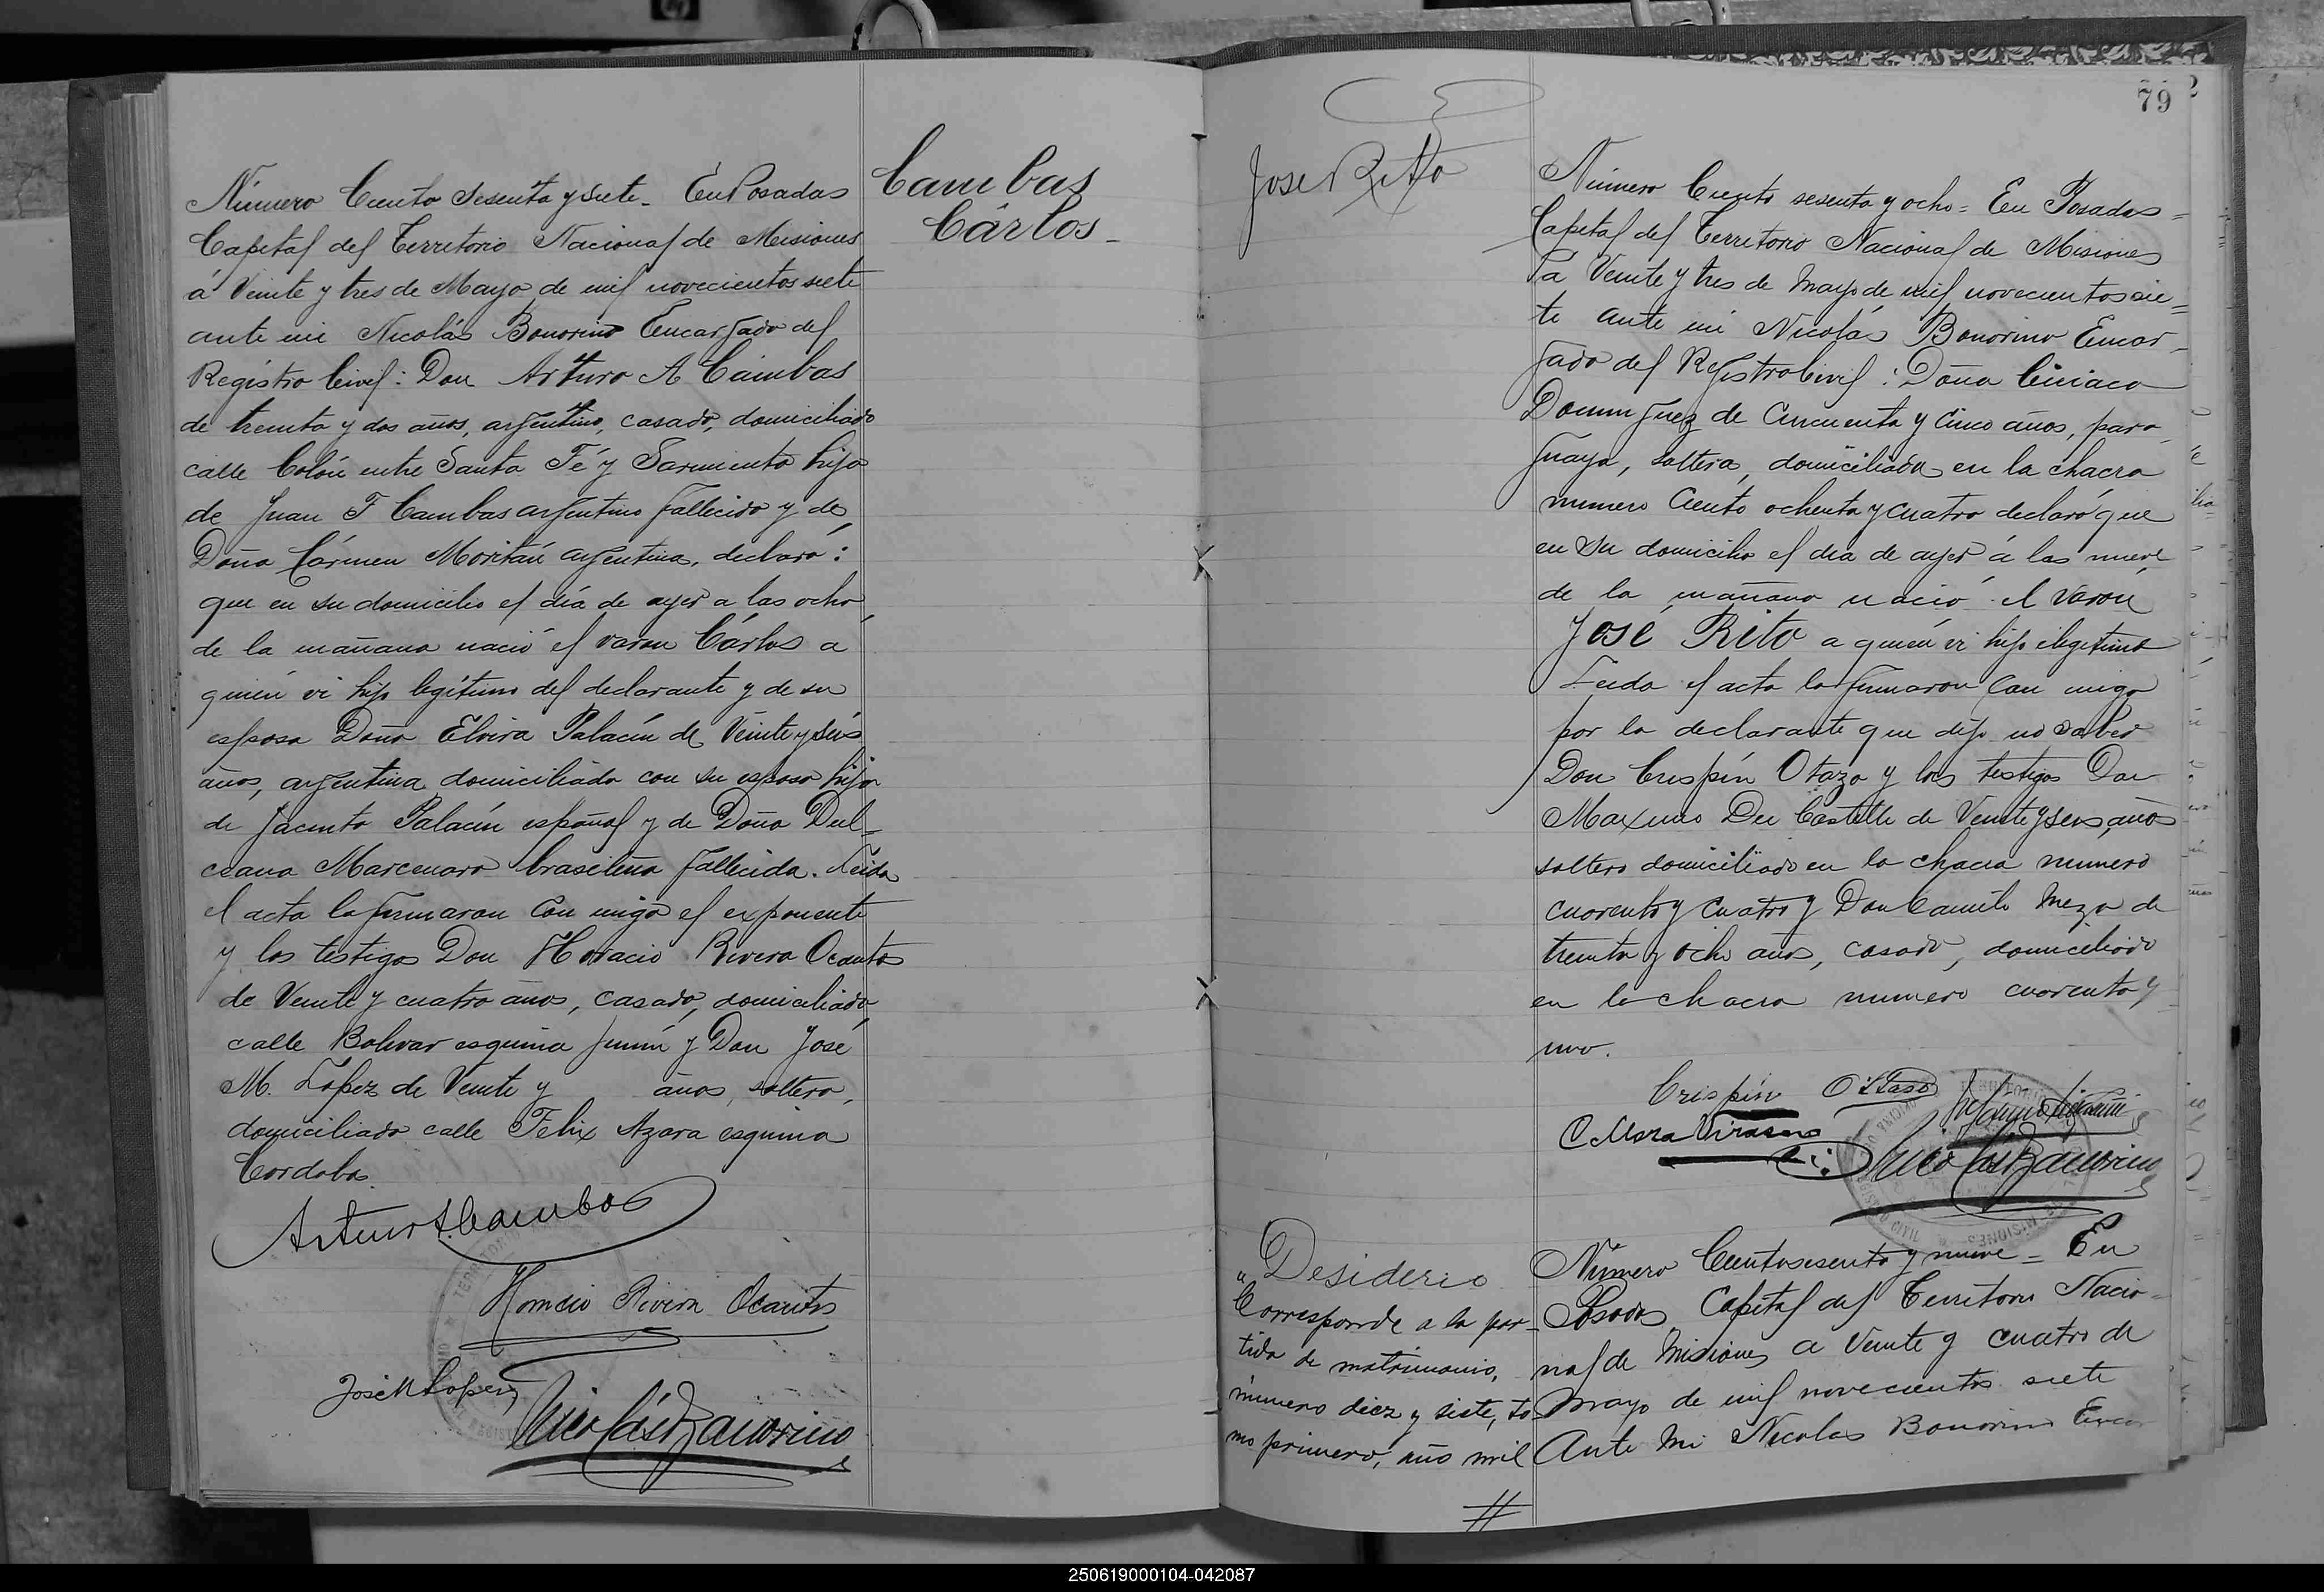 Número Ciento Sesenta y siete_ En Posadas
Capital del Territorio Nacional de Misiones
á Veinte y tres de Mayo de mil novecientos siete
ante mi Nicolás Bonorino Encargado del
Registro Civil: Don Arturo A Cambas
de treinta y dos años, argentino, casado, domiciliado
calle Colón entre Santa Fé y Sarmiento hijo
de Juan F Cambas argentino fallecido y de
Doña Cármen Moritán argentina, declaró:
que en su domicilio el día de ayer a las ocho
de la mañana nació el varon Cárlos a
quién vi hijo legítimo del declarante y de su
esposa Doña Elvira Palacín de Veinte y seis
años, argentina domiciliada con su esposo hija
de Jacinto Palacín español y de Doña Dul_
ceana Marcenaro brasileña fallecida. Leida
el acta la firmaron Con migo el exponente
y los testigos Don Horacio Rivera Ocantos
de Veinte y cuatro años, casado, domiciliado
calle Bolivar esquina Junín y Don José
M. Lopez de Veinte y años, soltero,
domiciliado calle Felix Azara esquina
Cordoba.
Arturo A. Cambas
Horacio Rivera Ocantos
José M Lopez
Nicolás Bonorino
Cambas
Cárlos_
79
Jose Rito
Número Ciento sesenta y ocho = En Posadas =
Capital del Territorio Nacional de Misiones
a Veinte y tres de Mayo de mil novecientos sie=
te ante mi Nicolás Bonorino Encar_
gado del Registro Civil: Doña Ciriaca
Dominguez de Cincuenta y Cinco años, para
guaya, soltera, domiciliada en la chacra
numero Ciento ochenta y cuatro declaró que
en su domicilio el dia de ayer á las nueve
de la mañana nació el varón
José Rito a quién vi hijo ilegitimo
Leida el acta la firmaron Con migo
por la declarante que dijo no saber
Don Crispín Otazo y los testigos Don
Maximo De Castelli de Veinte y seis años
soltero domiciliado en la chacra numero
cuarenta y cuatro y Don Camilo Meza de
treinta y ocho años, casado, domiciliado
en la chacra numero cuarenta y
uno.
Crispín Ottaso
Nicolás Bonorino
"Desiderio
Corresponde a la par-
tida de matrimonio,
número diez y siete, to-
mo primero, año mil
//
Número Ciento sesenta y nueve _ En
Posadas Capital del Territorio Nacio=
nal de Misiones a Veinte y cuatro de
Mayo de mil novecientos siete
Ante Mi Nicolas Bonorino Encar
250619000104-042087